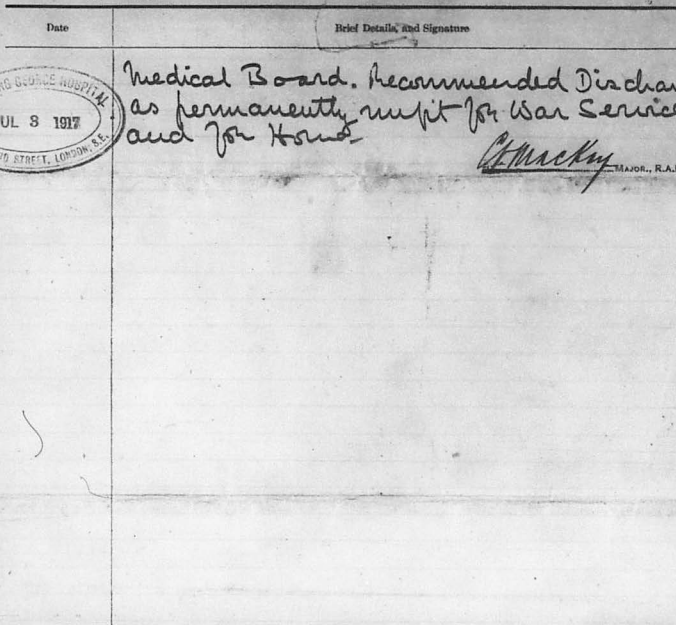 Date
Brief Details, and Signature
RG GEORGE HOSPITAL
UL 3 1917
STREET, LONDON, S.E.
Medical Board. Recommended Dischar
as permanently unfit for War Service
and for Home
MAJOR., R.A.